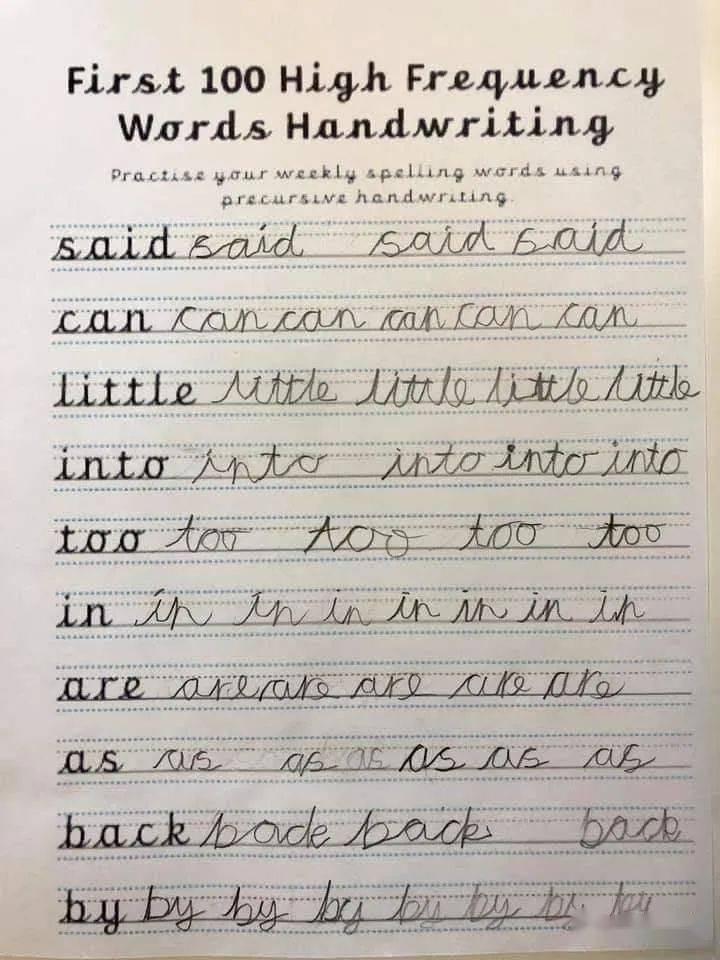 First 100 High Frequency
Words Handwriting
Practise your weekly spelling words using
precursive handwriting.
said said said said
can can can can can can
little little little little little
into into into into into
too too too too too
in in in in in in in in
are are are are are are
as as as as as as as
back back back back
by by by by by by by by